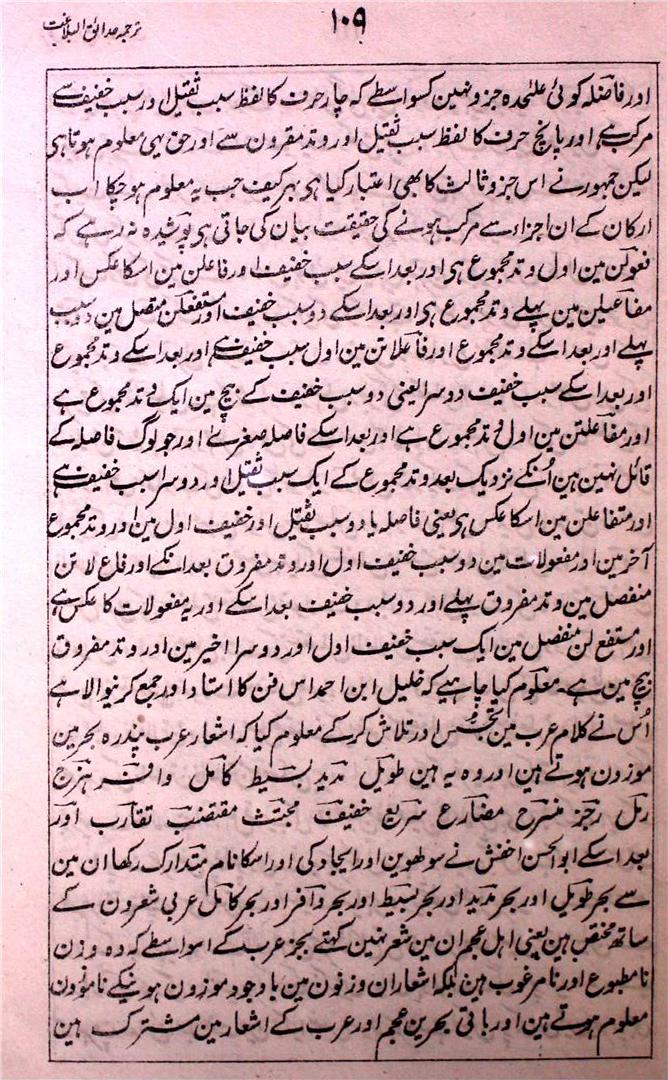 ۱۰۹
ترجمہ حدائق البلاغت
اور فاصلہ کوئی علٰحدہ جزو نہین کسواسطے کہ چار حرف کا لفظ سبب ثقیل اور سبب خفیف سے
مرکب ہے اور پانچ حرف کا لفظ سبب ثقیل اور وتد مقرون سے اور حق یہی معلوم ہوتا ہی
لیکن جمہور نے اس جزو ثالث کا بھی اعتبار کیا ہی بہر کیف جب یہ معلوم ہو چکا اب
ارکان کے ان اجزاء سے مرکب ہونے کی حقیقت بیان کی جاتی ہی پوشیدہ نرہے کہ
فعولن مین اول وتد مجموع ہی اور بعد اسکے سبب خفیف اور فاعلن مین اسکا عکس اور
مفاعیلن مین پہلے وتد مجموع ہی اور بعد اسکے دو سبب خفیف اور مستفعلن متصل مین دو سبب
پہلے اور بعد اسکے وتد مجموع اور فاعلاتن مین اول سبب خفیف ہے اور بعد اسکے وتد مجموع
اور بعد اسکے سبب خفیف دوسرا یعنی دو سبب خفیف کے بیچ مین ایک وتد مجموع ہے
اور مفاعلتن مین اول وتد مجموع ہے اور بعد اسکے فاصلہ صغرے اور جو لوگ فاصلہ کے
قائل نہین ہین اُنکے نزدیک بعد وتد مجموع کے ایک سبب ثقیل اور دوسرا سبب خفیف ہے
اور متفاعلن مین اسکا عکس ہی یعنی فاصلہ یا دو سبب ثقیل اور خفیف اول مین اور وتد مجموع
آخر مین اور مفعولات مین دو سبب خفیف اول اور وتد مفروق بعد انکے اور فاع لاتن
منفصل مین وتد مفروق پہلے اور دو سبب خفیف بعد اسکے اور یہ مفعولات کا عکس ہے
اور مستفع لن منفصل مین ایک سبب خفیف اول اور دوسرا اخیر مین اور وتد مفروق
بیچ مین ہے۔ معلوم کیا چاہیے کہ خلیل ابن احمد اس فن کا استاد اور جمع کرنیوالا ہے
اُس نے کلام عرب مین تجسّس اور تلاش کرکے معلوم کیا کہ اشعار عرب پندرہ بحر مین
موزون ہوتے ہین اور وہ یہ ہین طویل مدید بسیط کامل وافر ہزج
رمل رجز منسرح مضارع سریع خفیف مجتث مقتضب تقارب اور
بعد اسکے ابوالحسن اخفش نے سولھوین اور ایجاد کی اور اسکا نام متدارک رکھا ان مین
سے بحر طویل اور بحر مدید اور بحر بسیط اور بحر وافر اور بحر کامل عربی شعرون کے
ساتھ مختص ہین یعنی اہل عجم ان مین شعر نہین کہتے بجز عرب کے اسواسطے کہ وہ وزن
نا مطبوع اور نا مرغوب ہین بلکہ اشعار ان وزنون مین باوجود موزون ہونیکے ناموزون
معلوم ہوتے ہین اور باقی بحرین عجم اور عرب کے اشعار مین مشترک ہین